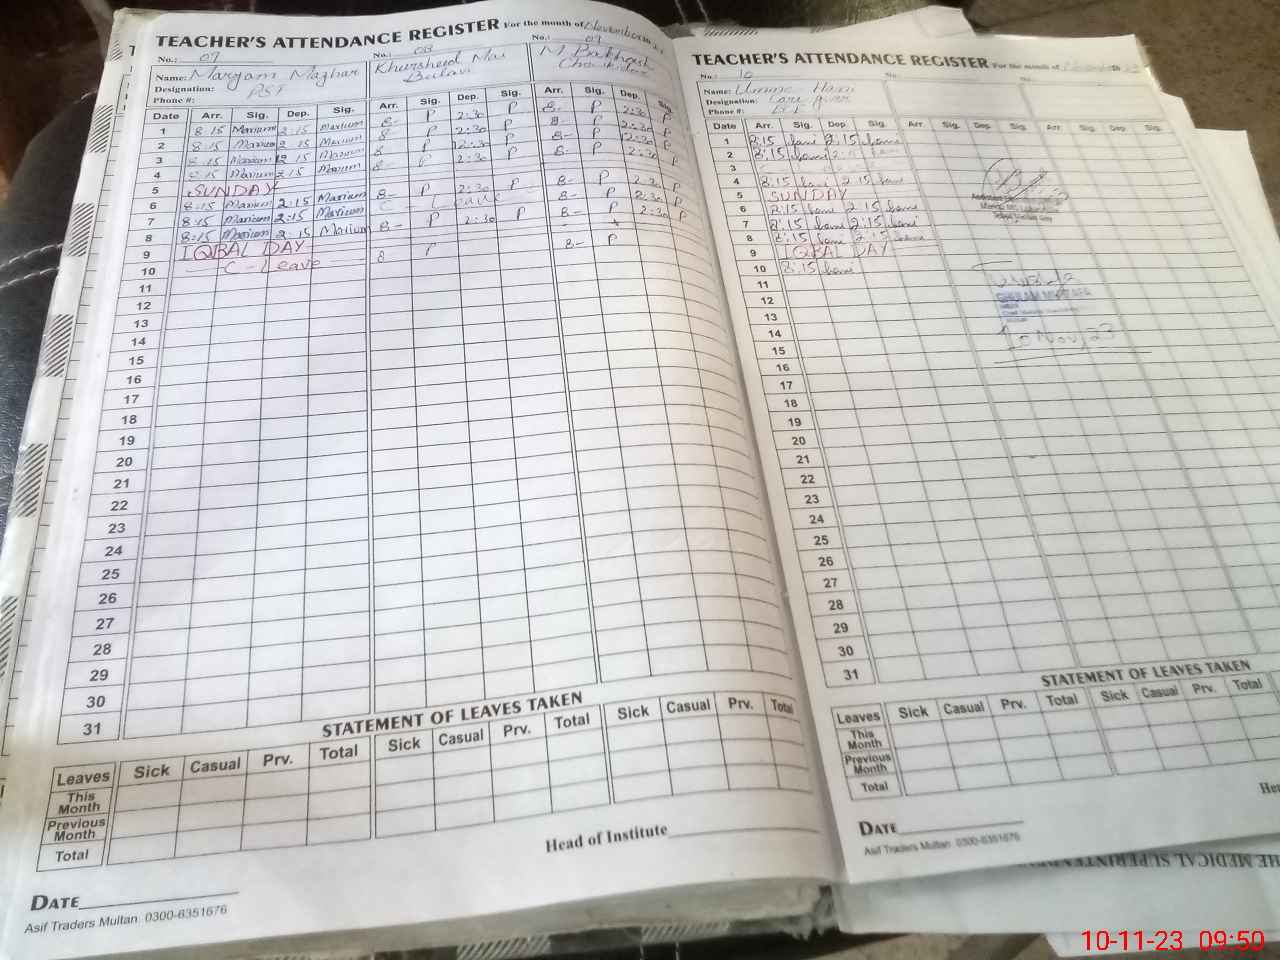 TEACHER'S ATTENDANCE REGISTER For the month of November
No.: 07 No.: 08 No.: 09
Name: Maryam Mazhar Khursheed Mai M Bakhsh
Designation: PST Bulavi Chowkidar
Phone #:
Date Arr. Sig. Dep. Sig. Arr. Sig. Dep. Sig. Arr. Sig. Dep. Sig.
1 8:15 Marium 2:15 Marium 8- P 2:30 P 8- P 2:30 P
2 8:15 Marium 2:15 Marium 8- P 2:30 P 8- P 2:30 P
3 8:15 Marium 2:15 Marium 8 P 2:30 P 8- P 2:30 P
4 8:15 Marium 2:15 Marium 8- P 2:30 P 8- P 2:30 P
5 SUNDAY
6 8:15 Marium 2:15 Marium 8- P 2:30 P 8- P 2:30 P
7 8:15 Marium 2:15 Marium C - Leave 8- P 2:30 P
8 8:15 Marium 2:15 Marium 8- P 2:30 P 8- P 2:30 P
9 IQBAL DAY
10 C - Leave 8 P 8- P
11
12
13
14
15
16
17
18
19
20
21
22
23
24
25
26
27
28
29
30
31
STATEMENT OF LEAVES TAKEN
Leaves Sick Casual Prv. Total Sick Casual Prv. Total Sick Casual Prv. Total
This Month
Previous Month
Total
Head of Institute
DATE
Asif Traders Multan 0300-6351676
TEACHER'S ATTENDANCE REGISTER For the month of
No.: 10 No. No.
Name: Umme Hani
Designation: Care giver
Phone #:
Date Arr. Sig. Dep. Sig. Arr. Sig. Dep. Sig. Arr. Sig. Dep. Sig.
1 8:15 hani 2:15 hani
2 8:15 hani 2:15 hani
3
4 8:15 hani 2:15 hani
5 SUNDAY
6 8:15 hani 2:15 hani
7 8:15 hani 2:15 hani
8 8:15 hani 2:15
9 IQBAL DAY
10 8:15 hani
11
12
13
14
15
16
17
18
19
20
21
22
23
24
25
26
27
28
29
30
31
GHULAM MUSTAFA
10 Nov, 23
STATEMENT OF LEAVES TAKEN
Leaves Sick Casual Prv. Total Sick Casual Prv. Total
This Month
Previous Month
Total
DATE
Asif Traders Multan 0300-6351676
HE MEDICAL SUPERINTEND
10-11-23 09:50